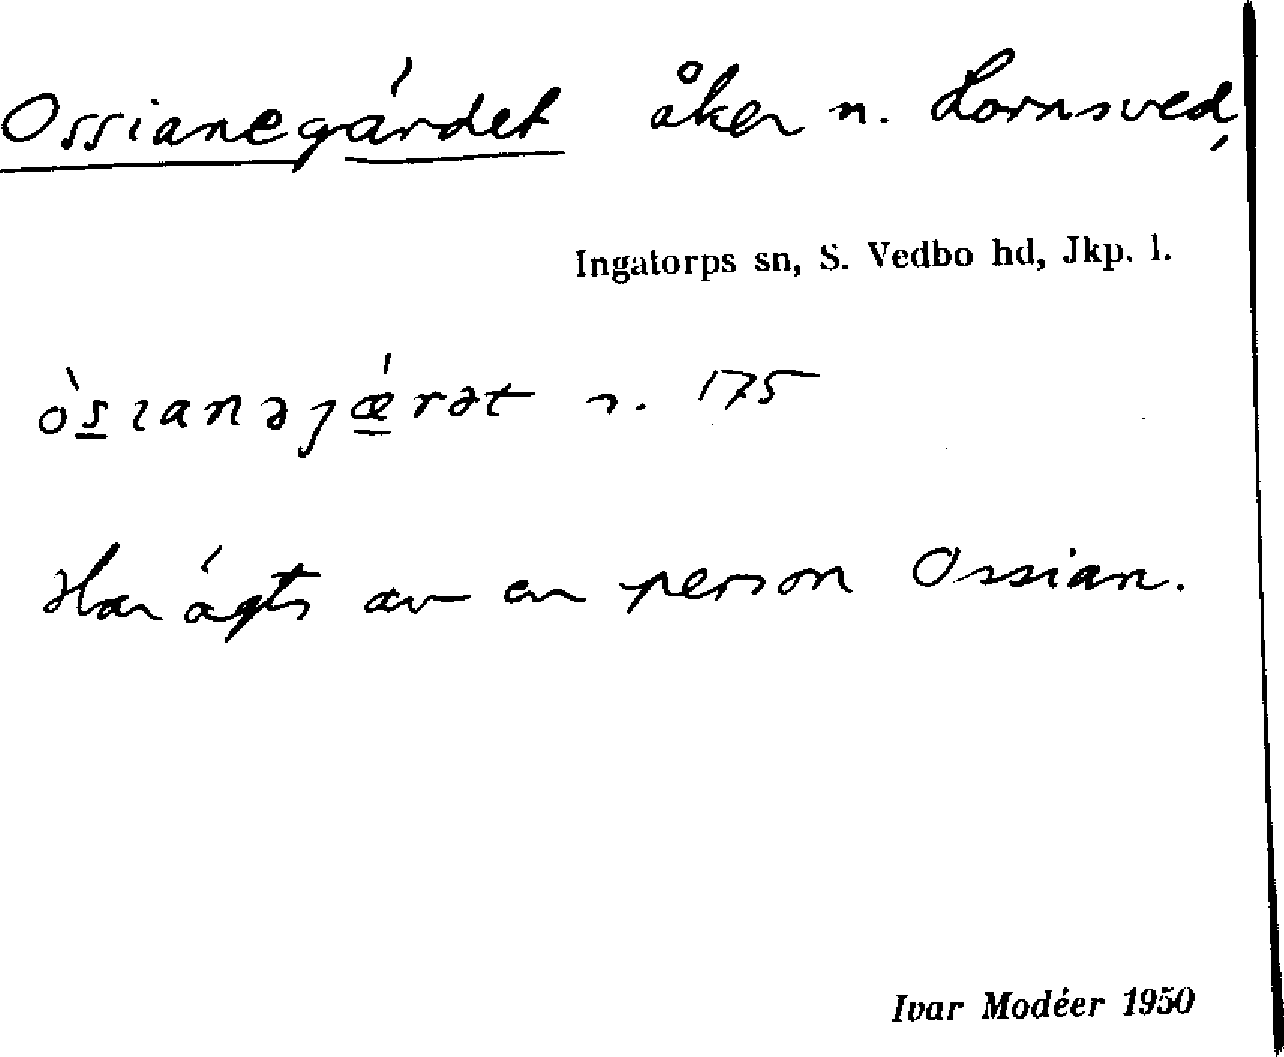 Ossianegärdet åker n. Lornsved,
Ingatorps sn, S. Vedbo hd, Jkp. l.
òsıanəjǽrət n. 175
Har ägts av en person Ossian.
Ivar Modéer 1950